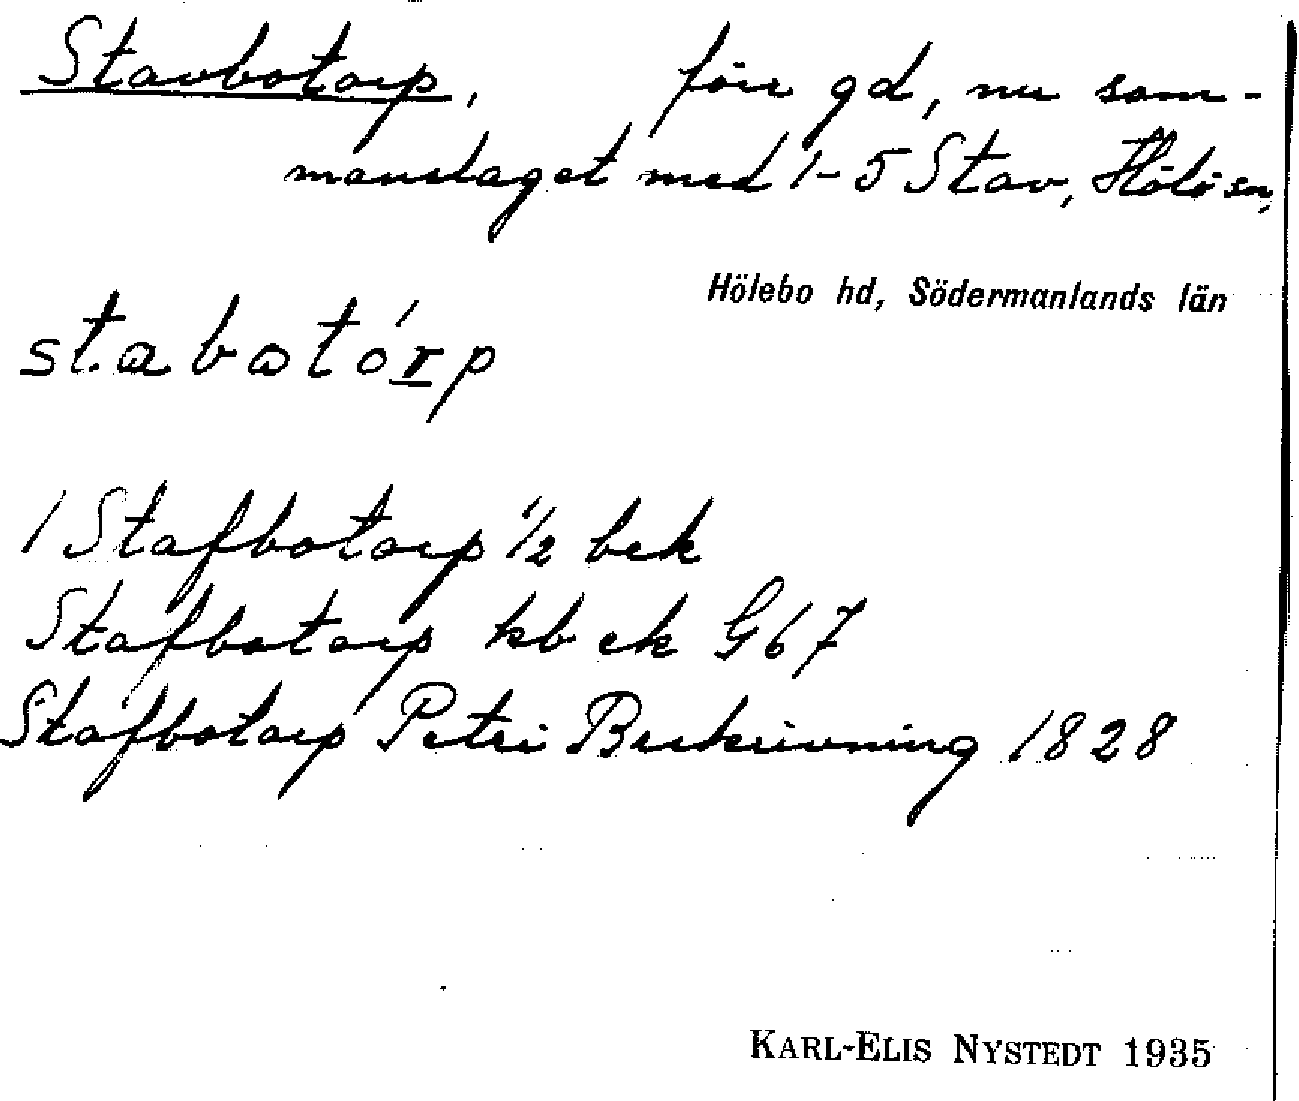 Stavbotorp, förr gd, nu sam-
manslaget med 1-5 Stav, Hölö sn,
Hölebo hd, Södermanlands län
stabotórp
1 Stafbotorp 1/2 bek
Stafbotorp kb ek G67
Stafbotorp Petri Beskrivning 1828
KARL-ELIS NYSTEDT 1935